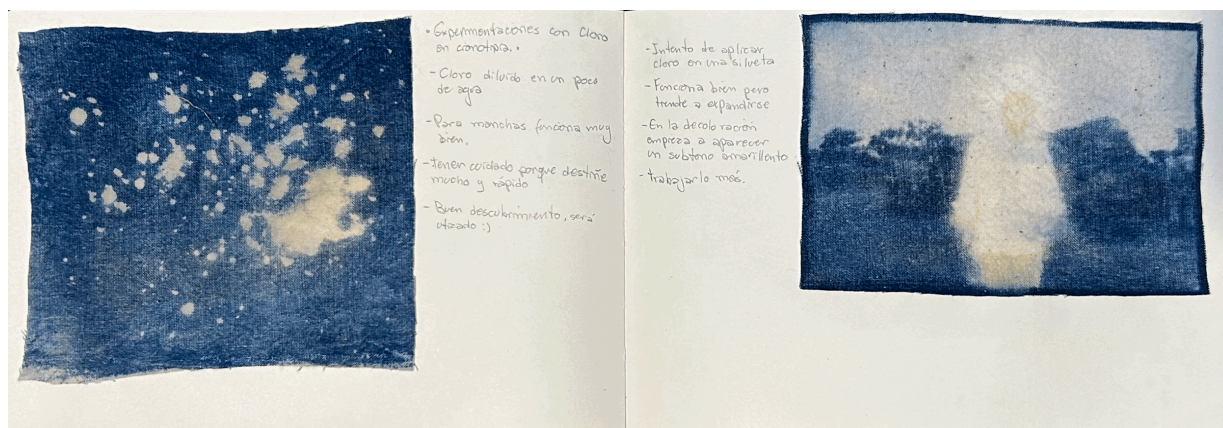 • Experimentaciones con Cloro
en cianotipia. •
- Cloro diluido en un poco
de agua
- Para manchas funciona muy
bien.
- tener cuidado porque destiñe
mucho y rápido
- Buen descubrimiento, será
utizado :)
- Intento de aplicar
cloro en una silueta
- Funciona bien pero
tiende a expandirse
- En la decoloración
empieza a aparecer
un subtono amarillento
- trabajarlo más.